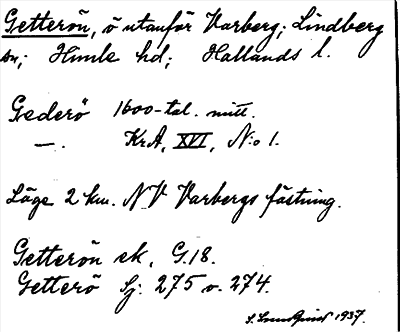 Getterön, ö utanför Varberg; Lindberg
sn; Himle hd; Hallands l.
Gederö 1600-tal. mitt.
—. KrA, XVI, N:o 1.
Läge 2 km. NV Varbergs fästning.
Getterön ek. G.18.
Getterö Sj: 275 o. 274.
1937.